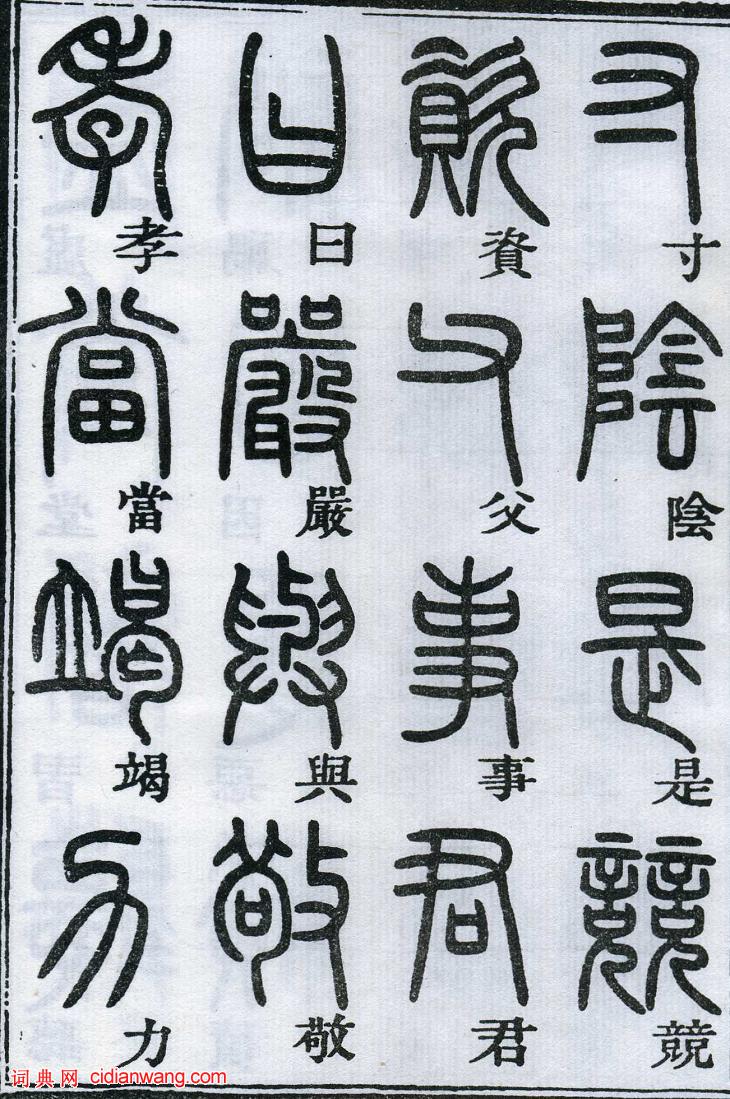 寸陰是競
資父事君
曰嚴與敬
孝當竭力
词典网 cidianwang.com